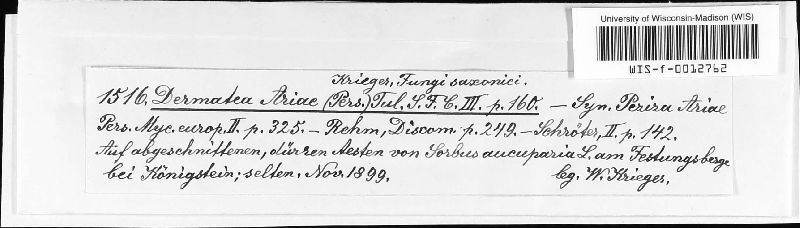 University of Wisconsin-Madison (WIS)
WIS-f-0012762
Krieger, Fungi saxonici.
1516. Dermatea Ariae (Pers.) Tul. S. F. C. III. p. 160. — Syn. Peziza Ariae
Pers. Myc. europ. II. p. 325. — Rehm, Discom. p. 249. — Schröter, II. p. 142.
Auf abgeschnittenen, dürren Aesten von Sorbus aucuparia L. am Festungsberge
bei Königstein; selten. Nov. 1899. leg. W. Krieger.